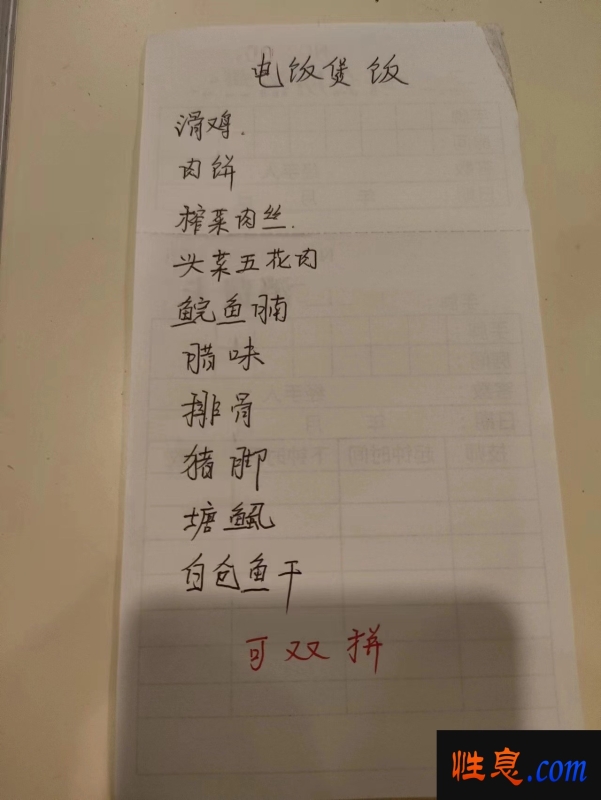 电饭煲饭
滑鸡.
肉饼
榨菜肉丝.
头菜五花肉
鲩鱼腩
腊味
排骨
猪脚
塘鲺
白仓鱼干
可双拼
性息.com